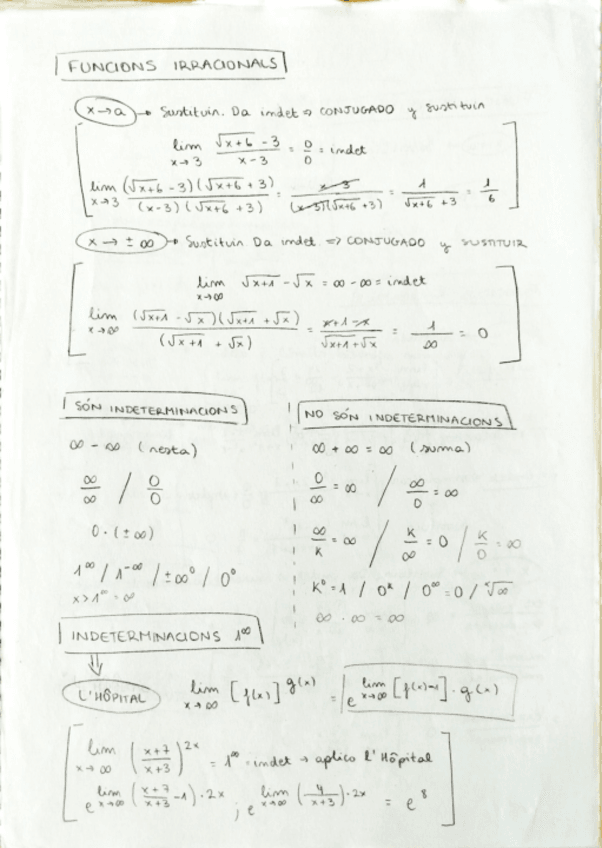 FUNCIONS IRRACIONALS
x→a → Sustituir. Da indet ⇒ CONJUGADO y sustituir
lim x→3 (√x+6 - 3)/(x-3) = 0/0 = indet
lim x→3 (√x+6 - 3)(√x+6 + 3)/(x-3)(√x+6 + 3) = x-3/(x-3)(√x+6 + 3) = 1/(√x+6 + 3) = 1/6
x → ±∞ → Sustituir Da indet => CONJUGADO y SUSTITUIR
lim x→∞ √x+1 - √x = ∞ - ∞ = indet
lim x→∞ (√x+1 - √x)(√x+1 + √x)/(√x+1 + √x) = x+1-x/(√x+1+√x) = 1/∞ = 0
SÓN INDETERMINACIONS
∞ - ∞ (resta)
∞/∞ / 0/0
0 · (±∞)
1^∞ / 1^-∞ / ±∞^0 / 0^0
x>1^∞ = ∞
NO SÓN INDETERMINACIONS
∞ + ∞ = ∞ (suma)
0/∞ = ∞ / ∞/0 = ∞
∞/K = ∞ / K/∞ = 0 / K/0 = ∞
K^0 = 1 / 0^K / 0^∞ = 0 / √∞
∞ · ∞ = ∞
INDETERMINACIONS 1^∞
L'HÔPITAL lim x→∞ [f(x)]^g(x) = e^lim x→∞ [f(x)-1] · g(x)
lim x→∞ (x+7/x+3)^2x = 1^∞ = indet → aplico l'Hôpital
e^lim x→∞ (x+7/x+3 - 1) · 2x ; e^lim x→∞ (4/x+3) · 2x = e^8